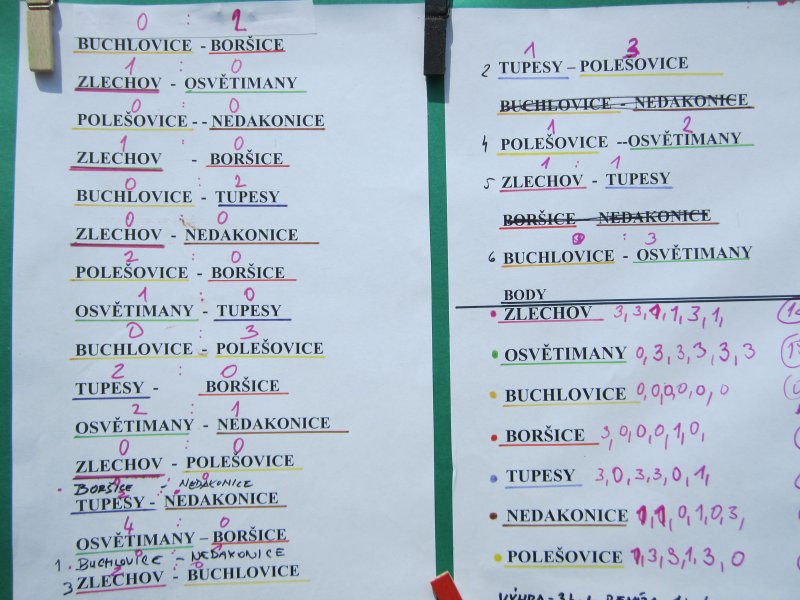 0 : 2
BUCHLOVICE - BORŠICE
1 : 0
ZLECHOV - OSVĚTIMANY
0 : 0
POLEŠOVICE -- NEDAKONICE
1 : 0
ZLECHOV - BORŠICE
0 : 2
BUCHLOVICE - TUPESY
0 : 0
ZLECHOV - NEDAKONICE
2 : 0
POLEŠOVICE - BORŠICE
1 : 0
OSVĚTIMANY - TUPESY
0 : 3
BUCHLOVICE - POLEŠOVICE
2 : 0
TUPESY - BORŠICE
2 : 1
OSVĚTIMANY - NEDAKONICE
0 : 0
ZLECHOV - POLEŠOVICE
BORŠICE - NEDAKONICE
TUPESY - NEDAKONICE
4 : 0
OSVĚTIMANY – BORŠICE
1. BUCHLOVICE - NEDAKONICE
3 ZLECHOV - BUCHLOVICE
1 3
2 TUPESY – POLEŠOVICE
BUCHLOVICE - NEDAKONICE
1 : 2
4 POLEŠOVICE --OSVĚTIMANY
1 : 1
5 ZLECHOV - TUPESY
BORŠICE - NEDAKONICE
: 3
6 BUCHLOVICE - OSVĚTIMANY
BODY
ZLECHOV 3, 3, 1, 1, 3, 1,
OSVĚTIMANY 0, 3, 3, 3, 3, 3
BUCHLOVICE 0, 0, 0, 0, 0, 0
BORŠICE 3, 0, 0, 0, 1, 0,
TUPESY 3, 0, 3, 3, 0, 1,
NEDAKONICE 1, 1, 0, 1, 0, 3,
POLEŠOVICE 1, 3, 3, 1, 3, 0